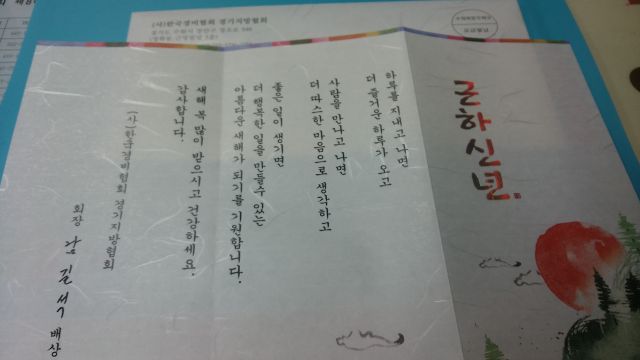 (사)한국경비협회 경기지방협회
근하신년
하루를 지내고 나면
더 즐거운 하루가 오고
사람을 만나고 나면
더 따스한 마음으로 생각하고
좋은 일이 생기면
더 행복한 일을 만들수 있는
아름다운 새해가 되기를 기원합니다.
새해 복 많이 받으시고 건강하세요.
감사합니다.
(사)한국경비협회 경기지방협회
회장 남길석 배상